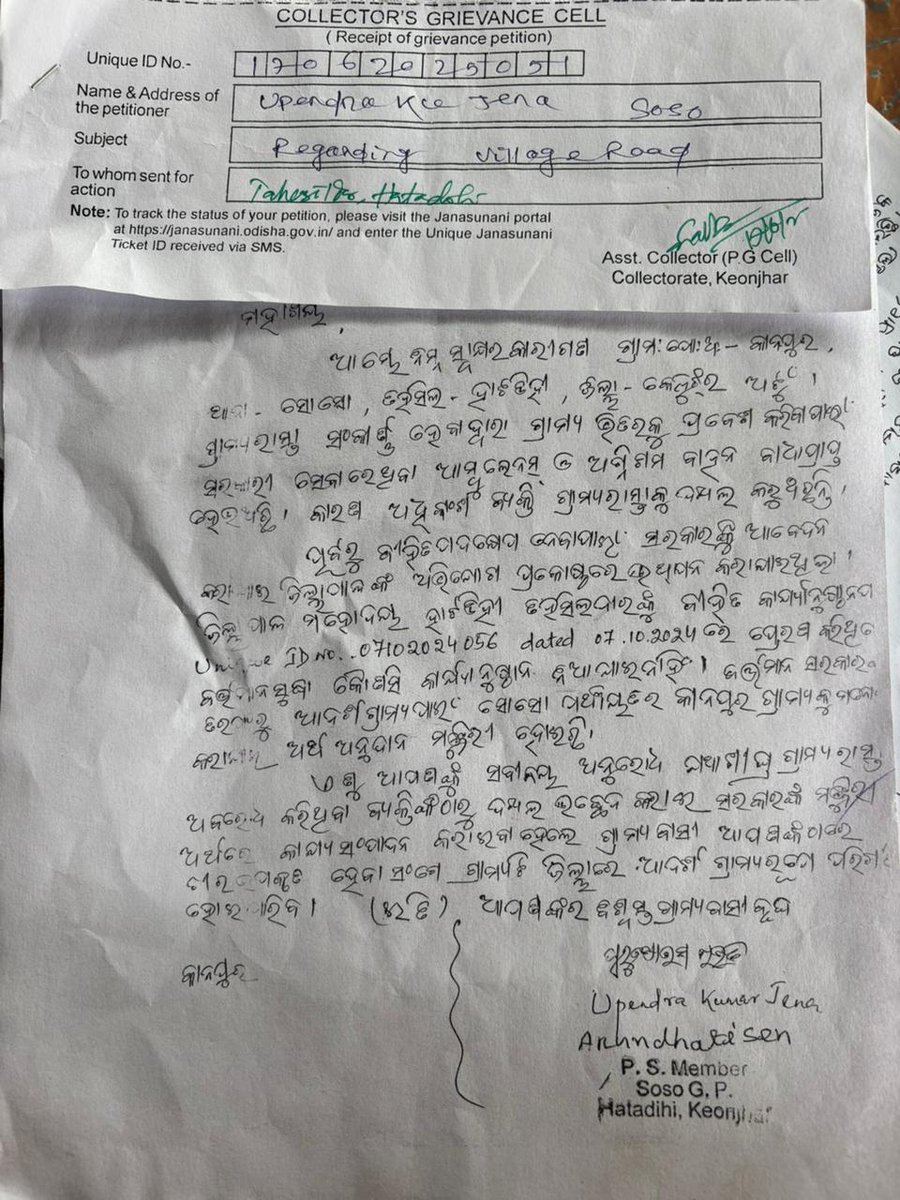 COLLECTOR'S GRIEVANCE CELL
( Receipt of grievance petition)
Unique ID No.- 17062025051
Name & Address of the petitioner Upendra Kr Jena Soso
Subject Regarding Village Road
To whom sent for action Tahesildar, Hatadihi
Note: To track the status of your petition, please visit the Janasunani portal
at https://janasunani.odisha.gov.in/ and enter the Unique Janasunani
Ticket ID received via SMS.
Asst. Collector (P.G Cell)
Collectorate, Keonjhar
ମହାଶୟ,
ଆମ୍ଭେ ନିମ୍ନ ସ୍ୱାକ୍ଷରକାରୀଗଣ ଗ୍ରାମ:ପୋ:ଅ - କାନପୁର,
ଥାନା - ସୋସୋ, ତହସିଲ - ହାଟଡିହୀ, ଜିଲ୍ଲା - କେନ୍ଦୁଝର ଅଟୁଁ ।
ଗ୍ରାମ୍ୟରାସ୍ତା ସଂକୀର୍ଣ୍ଣ ହେବାଦ୍ୱାରା ଗ୍ରାମ୍ୟ ଭିତରକୁ ପ୍ରବେଶ କରିବାପାଇଁ
ସରକାରୀ ସେବାରେଥିବା ଆମ୍ବୁଲେନସ୍ ଓ ଅଗ୍ନିଶମ ବାହନ ବାଧାପ୍ରାପ୍ତ
ହେଉଅଛି । କାରଣ ଅଧିକାଂଶ ବ୍ୟକ୍ତି ଗ୍ରାମ୍ୟରାସ୍ତାକୁ ଦଖଲ କରୁଅଛନ୍ତି ।
ପୂର୍ବରୁ ବିହିତ ପଦକ୍ଷେପ ନେବାପାଇଁ ସରକାରଙ୍କୁ ଆବେଦନ
କରାଯାଇ ଜିଲ୍ଲାପାଳଙ୍କ ଅଭିଯୋଗ ପ୍ରକୋଷ୍ଠରେ ଉତ୍ଥାପନ କରାଯାଇଥିଲା ।
ଜିଲ୍ଲାପାଳ ମହୋଦୟ ହାଟଡିହୀ ତହସିଲଦାରଙ୍କୁ ବିହିତ କାର୍ଯ୍ୟାନୁଷ୍ଠାନପାଇଁ
Unique ID No. 07102024056 dated 07.10.2024 ରେ ପ୍ରେରଣ କରିଥିଲେ
ବର୍ତ୍ତମାନସୁଦ୍ଧା କୌଣସି କାର୍ଯ୍ୟାନୁଷ୍ଠାନ ନିଆଯାଇନାହିଁ । ବର୍ତ୍ତମାନ ସରକାରଙ୍କ
ତରଫରୁ ଆଦର୍ଶ ଗ୍ରାମ୍ୟପାଇଁ ସୋସୋ ପଞ୍ଚାୟତର କାନପୁର ଗ୍ରାମ୍ୟକୁ
କରାଯାଇ ଅର୍ଥ ଅନୁଦାନ ମଞ୍ଜୁରୀ ହୋଇଛି ।
ତେଣୁ ଆପଣଙ୍କୁ ସବିନୟ ଅନୁରୋଧ ଯଥାଶୀଘ୍ର ଗ୍ରାମ୍ୟରାସ୍ତା
ଅବରୋଧ କରିଥିବା ବ୍ୟକ୍ତିଙ୍କଠାରୁ ଦଖଲ ଉଚ୍ଛେଦ କରାଇ ସରକାରଙ୍କ ମଞ୍ଜୁରୀ
ଅର୍ଥରେ କାର୍ଯ୍ୟ ସଂପାଦନ କରାଇବା ହେଲେ ଗ୍ରାମ୍ୟବାସୀ ଆପଣଙ୍କଠାରେ
ଚୀରଉପକୃତ ହେବା ସଂଗେ ଗ୍ରାମ୍ୟଟି ଜିଲ୍ଲାରେ ଆଦର୍ଶ ଗ୍ରାମ୍ୟରୂପେ
ହୋଇପାରିବ । (ଇତି) ଆପଣଙ୍କର ବିଶ୍ୱସ୍ତ ଗ୍ରାମ୍ୟବାସୀବୃନ୍ଦ
କାନପୁର
Upendra Kumar Jena
Arundhati Sen
P. S. Member
Soso G. P.
Hatadihi, Keonjhar